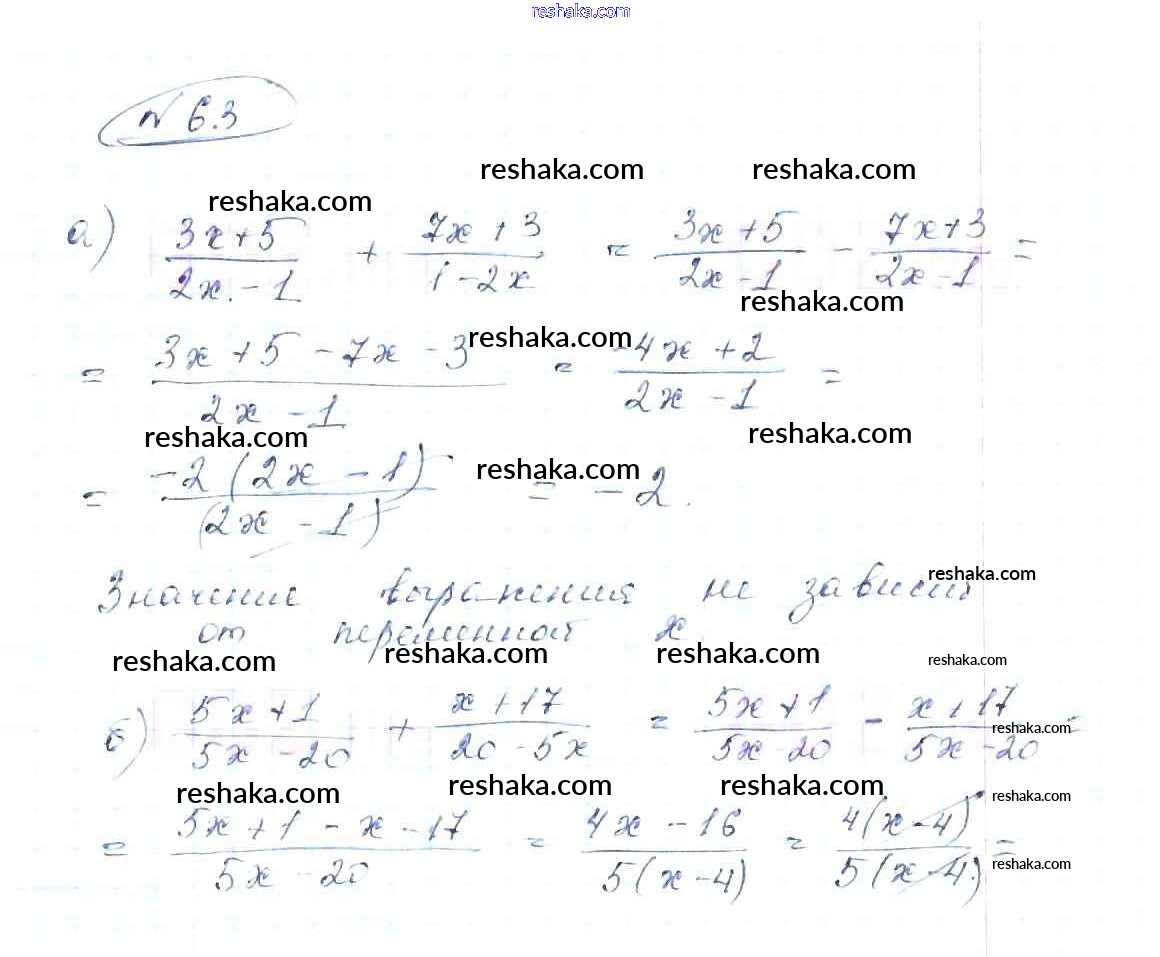 reshaka.com
№ 63
reshaka.com reshaka.com
reshaka.com
а) (3x+5)/(2x-1) + (7x+3)/(1-2x) = (3x+5)/(2x-1) - (7x+3)/(2x-1) =
reshaka.com
reshaka.com
= (3x+5-7x-3)/(2x-1) = (-4x+2)/(2x-1) =
reshaka.com reshaka.com
reshaka.com
= (-2(2x-1))/((2x-1)) = -2.
reshaka.com
Значение выражения не зависит
от переменной x.
reshaka.com reshaka.com reshaka.com reshaka.com
б) (5x+1)/(5x-20) + (x+17)/(20-5x) = (5x+1)/(5x-20) - (x+17)/(5x-20) =
reshaka.com
reshaka.com reshaka.com reshaka.com reshaka.com
= (5x+1-x-17)/(5x-20) = (4x-16)/(5(x-4)) = (4(x-4))/(5(x-4)) =
reshaka.com